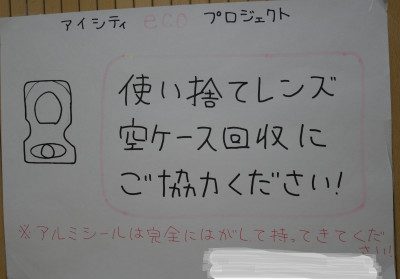 アイシティ eco プロジェクト
使い捨てレンズ
空ケース回収に
ご協力ください!
※アルミシールは完全にはがして持ってきてくだ
さい!